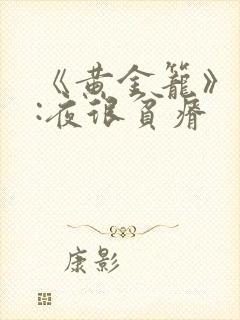 《黄金笼》
:夜很贫瘠
康影